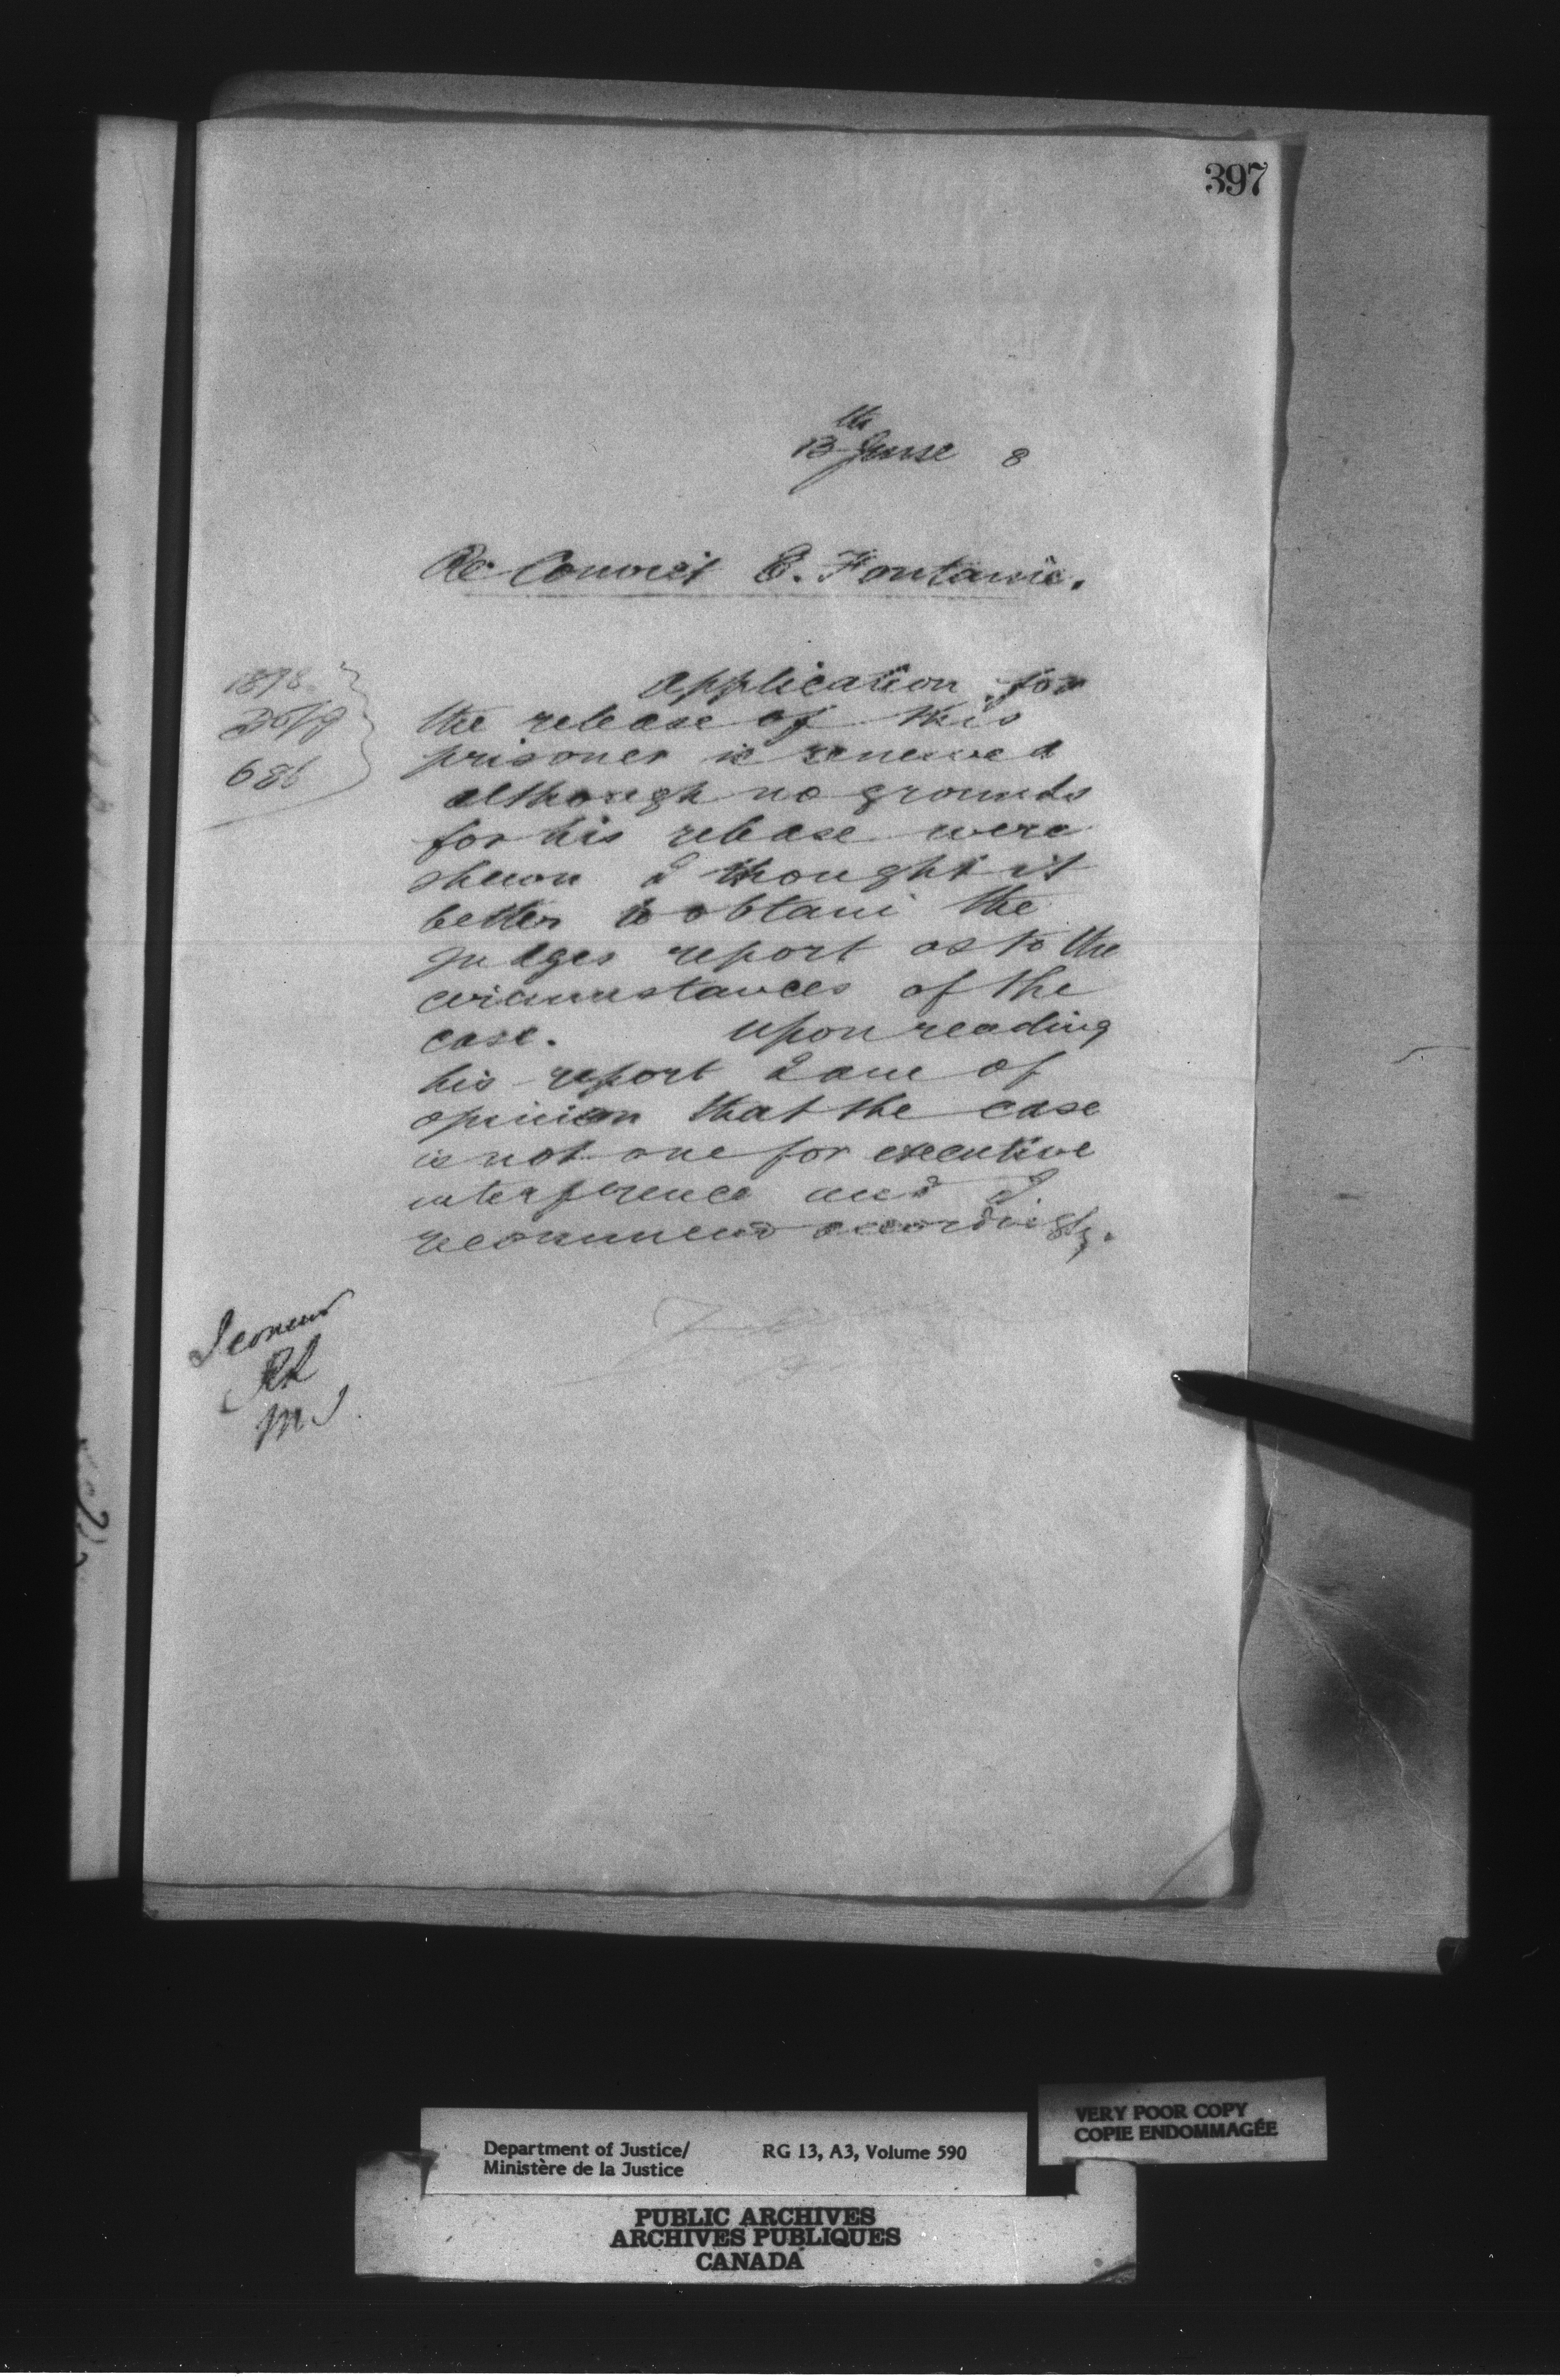 397
13th June 8
Re Convict E. Fontaine.
1878
686
Application for
the release of this
prisoner is renewed
although no grounds
for his release were
shewn I thought it
better to obtain the
Judges report as to the
circumstances of the
case. Upon reading
his report I am of
opinion that the case
is not one for executive
interference and I
recommend accordingly.
I concur
RL
MJ
VERY POOR COPY
COPIE ENDOMMAGÉE
Department of Justice/ RG 13, A3, Volume 590
Ministère de la Justice
PUBLIC ARCHIVES
ARCHIVES PUBLIQUES
CANADA